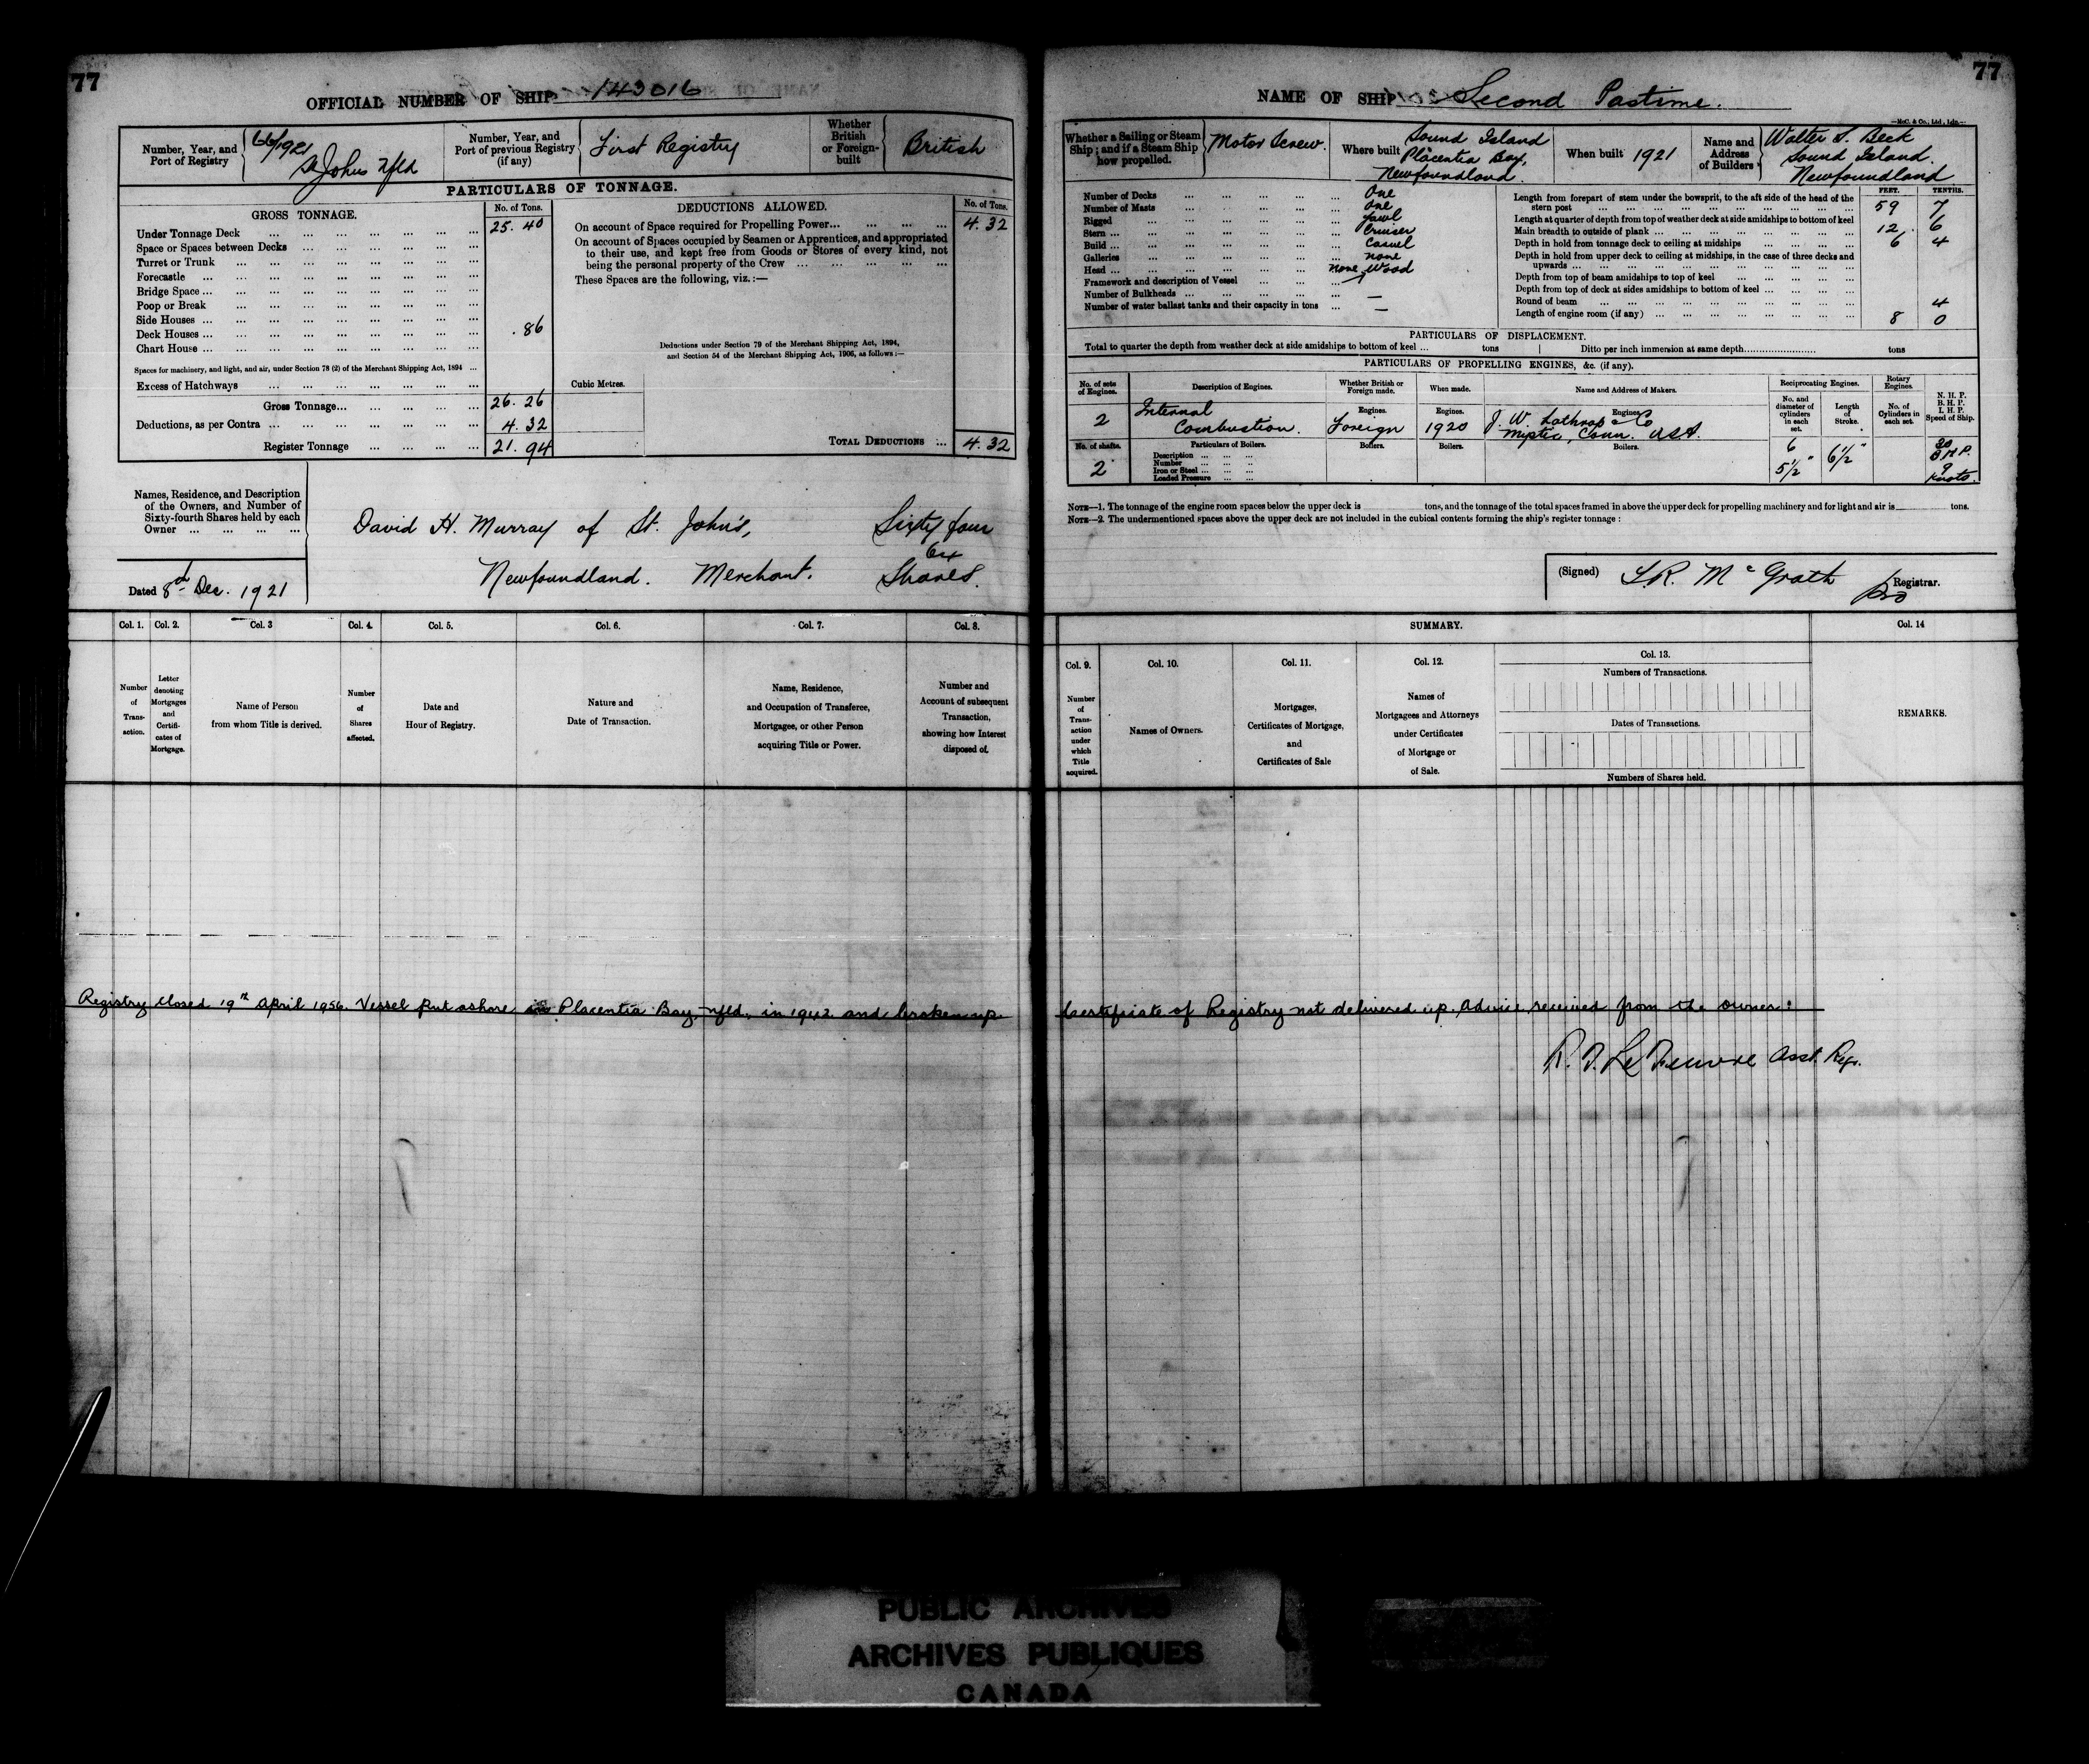 77
OFFICIAL NUMBER OF SHIP 143016
Number, Year, and Port of Registry
66/1921
St Johns Nfld
Number, Year, and Port of previous Registry (if any)
First Registry
Whether British or Foreign-built
British
PARTICULARS OF TONNAGE.
GROSS TONNAGE.
No. of Tons.
Under Tonnage Deck ... 25.40
Space or Spaces between Decks
Turret or Trunk
Forecastle
Bridge Space
Poop or Break
Side Houses
Deck Houses ... .86
Chart House
Spaces for machinery, and light, and air, under Section 78 (2) of the Merchant Shipping Act, 1894
Excess of Hatchways
Gross Tonnage... 26.26
Deductions, as per Contra ... 4.32
Register Tonnage ... 21.94
DEDUCTIONS ALLOWED.
No. of Tons.
On account of Space required for Propelling Power... 4.32
On account of Spaces occupied by Seamen or Apprentices, and appropriated
to their use, and kept free from Goods or Stores of every kind, not
being the personal property of the Crew
These Spaces are the following, viz.:—
Deductions under Section 79 of the Merchant Shipping Act, 1894,
and Section 54 of the Merchant Shipping Act, 1906, as follows:—
Cubic Metres.
TOTAL DEDUCTIONS ... 4.32
Names, Residence, and Description
of the Owners, and Number of
Sixty-fourth Shares held by each
Owner
David H. Murray of St. John's, Sixty four
64
Newfoundland. Merchant. Shares.
Dated 8th Dec. 1921
Col. 1. Col. 2. Col. 3 Col. 4. Col. 5. Col. 6. Col. 7. Col. 8.
Number of Trans-action.
Letter denoting Mortgages and Certifi-cates of Mortgage.
Name of Person from whom Title is derived.
Number of Shares affected.
Date and Hour of Registry.
Nature and Date of Transaction.
Name, Residence, and Occupation of Transferee, Mortgagee, or other Person acquiring Title or Power.
Number and Account of subsequent Transaction, showing how Interest disposed of.
77
NAME OF SHIP Second Pastime.
—McC. & Co., Ltd., Ldn.—
Whether a Sailing or Steam Ship; and if a Steam Ship how propelled.
Motor Screw.
Where built
Sound Island
Placentia Bay,
Newfoundland.
When built 1921
Name and Address of Builders
Walter S. Beck
Sound Island.
Newfoundland
Number of Decks ... One
Number of Masts ... One
Rigged ... Yawl
Stern ... Cruiser
Build ... Carvel
Galleries ... none
Head ... none
Framework and description of Vessel ... Wood
Number of Bulkheads ... —
Number of water ballast tanks and their capacity in tons ... —
FEET. TENTHS.
Length from forepart of stem under the bowsprit, to the aft side of the head of the
stern post ... 59 7
Length at quarter of depth from top of weather deck at side amidships to bottom of keel
Main breadth to outside of plank ... 12 . 6
Depth in hold from tonnage deck to ceiling at midships ... 6 4
Depth in hold from upper deck to ceiling at midships, in the case of three decks and
upwards
Depth from top of beam amidships to top of keel
Depth from top of deck at sides amidships to bottom of keel
Round of beam ... 4
Length of engine room (if any) ... 8 0
PARTICULARS OF DISPLACEMENT.
Total to quarter the depth from weather deck at side amidships to bottom of keel ... tons
Ditto per inch immersion at same depth........ tons
PARTICULARS OF PROPELLING ENGINES, &c. (if any).
No. of sets of Engines.
Description of Engines.
Whether British or Foreign made.
When made.
Name and Address of Makers.
Reciprocating Engines.
Rotary Engines.
No. and diameter of cylinders in each set.
Length of Stroke.
No. of Cylinders in each set.
N. H. P.
B. H. P.
I. H. P.
Speed of Ship.
2
Internal
Combustion.
Engines.
Foreign
Engines.
1920
Engines.
J. W. Lathrop & Co
Mystic, Conn. USA.
No. of shafts.
2
Particulars of Boilers.
Description
Number
Iron or Steel
Loaded Pressure
Boilers.
Boilers.
Boilers.
6
5½"
6½"
30
BHP.
9
knots.
NOTE—1. The tonnage of the engine room spaces below the upper deck is tons, and the tonnage of the total spaces framed in above the upper deck for propelling machinery and for light and air is tons.
NOTE—2. The undermentioned spaces above the upper deck are not included in the cubical contents forming the ship's register tonnage:
(Signed) McGrath Registrar.
pro
SUMMARY.
Col. 9. Col. 10. Col. 11. Col. 12. Col. 13. Col. 14
Number of Trans-action under which Title acquired.
Names of Owners.
Mortgages, Certificates of Mortgage, and Certificates of Sale
Names of Mortgagees and Attorneys under Certificates of Mortgage or of Sale.
Numbers of Transactions.
Dates of Transactions.
Numbers of Shares held.
REMARKS.
Registry closed 19th April 1956. Vessel put ashore in Placentia Bay, Nfld., in 1942 and broken up. Certificate of Registry not delivered up. Advice received from the owner:
Asst. Regr.
PUBLIC ARCHIVES
ARCHIVES PUBLIQUES
CANADA